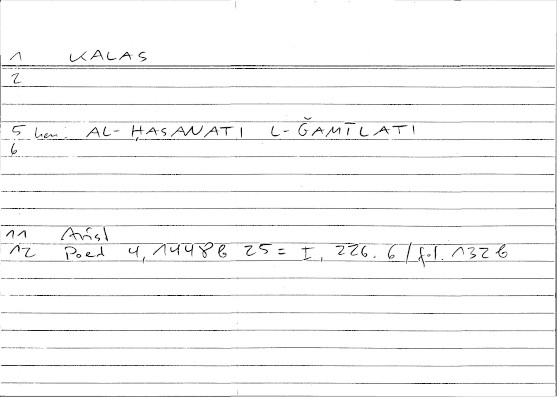 1 KALAS
2
5 ḥan: AL-ḤASANATI L-ǦAMĪLATI
6
11 Arist
12 Poet 4, 1448b 25 = I, 226.6 / fol. 132b